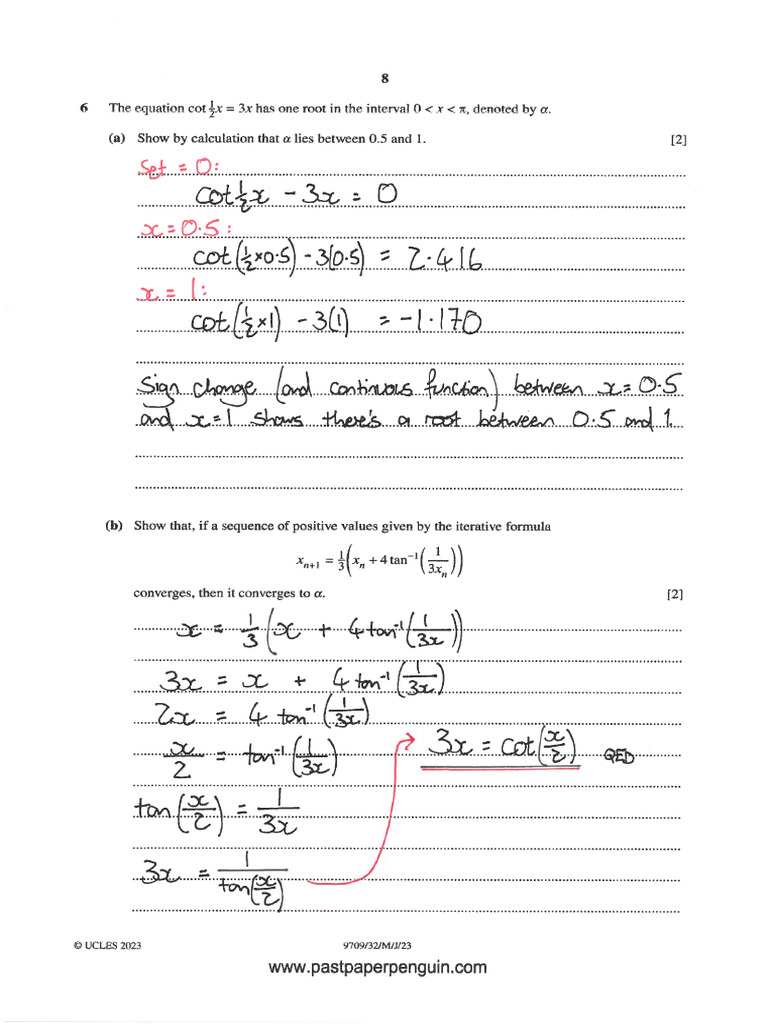 8
6 The equation cot ½x = 3x has one root in the interval 0 < x < π, denoted by α.
(a) Show by calculation that α lies between 0.5 and 1. [2]
Set = 0:
cot ½x − 3x = 0
x = 0.5:
cot(½×0.5) − 3(0.5) = 2.416
x = 1:
cot(½×1) − 3(1) = −1.170
Sign change (and continuous function) between x = 0.5
and x=1 shows there's a root between 0.5 and 1.
(b) Show that, if a sequence of positive values given by the iterative formula
xₙ₊₁ = ⅓(xₙ + 4 tan⁻¹(1/(3xₙ)))
converges, then it converges to α. [2]
x = 1/3 (x + 4 tan⁻¹(1/3x))
3x = x + 4 tan⁻¹(1/3x)
2x = 4 tan⁻¹(1/3x)
x/2 = tan⁻¹(1/3x)
tan(x/2) = 1/3x
3x = 1/tan(x/2)
3x = cot(x/2) QED
© UCLES 2023 9709/32/M/J/23
www.pastpaperpenguin.com